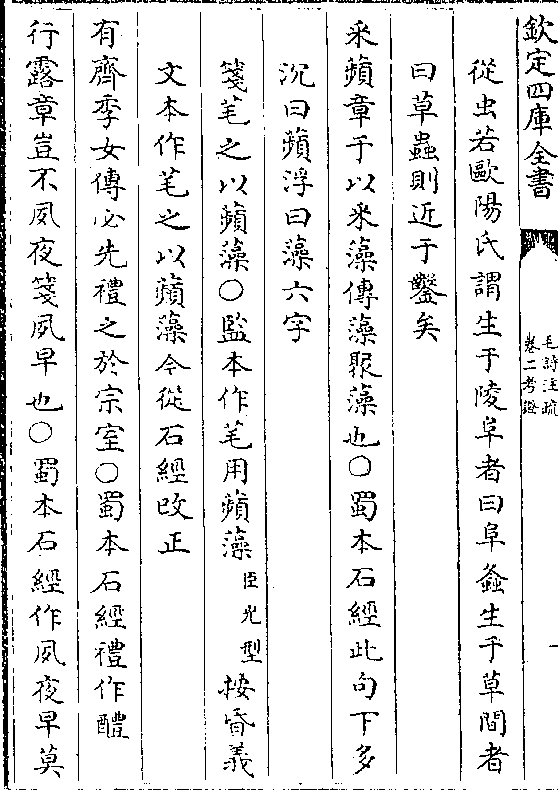 欽定四庫全書
毛詩注疏
卷二考證
從虫若歐陽氏謂生于陵阜者曰阜螽生于草間者
曰草蟲則近于鑿矣
采蘋章于以采藻傳藻聚藻也○蜀本石經此句下多
沉曰蘋浮曰藻六字
箋芼之以蘋藻○監本作芼用蘋藻臣光型按昏義
文本作芼之以蘋藻今從石經改正
有齊季女傳必先禮之於宗室○蜀本石經禮作醴
行露章豈不夙夜箋夙早也○蜀本石經作夙夜早莫